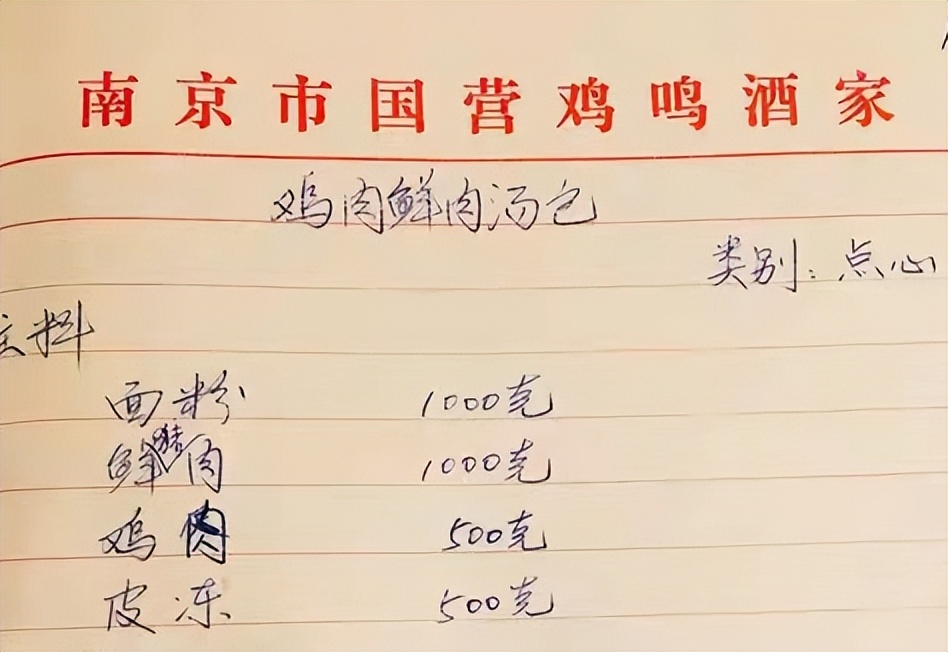 南京市国营鸡鸣酒家
鸡肉鲜肉汤包
类别：点心
主料
面粉 1000克
鲜猪肉 1000克
鸡肉 500克
皮冻 500克